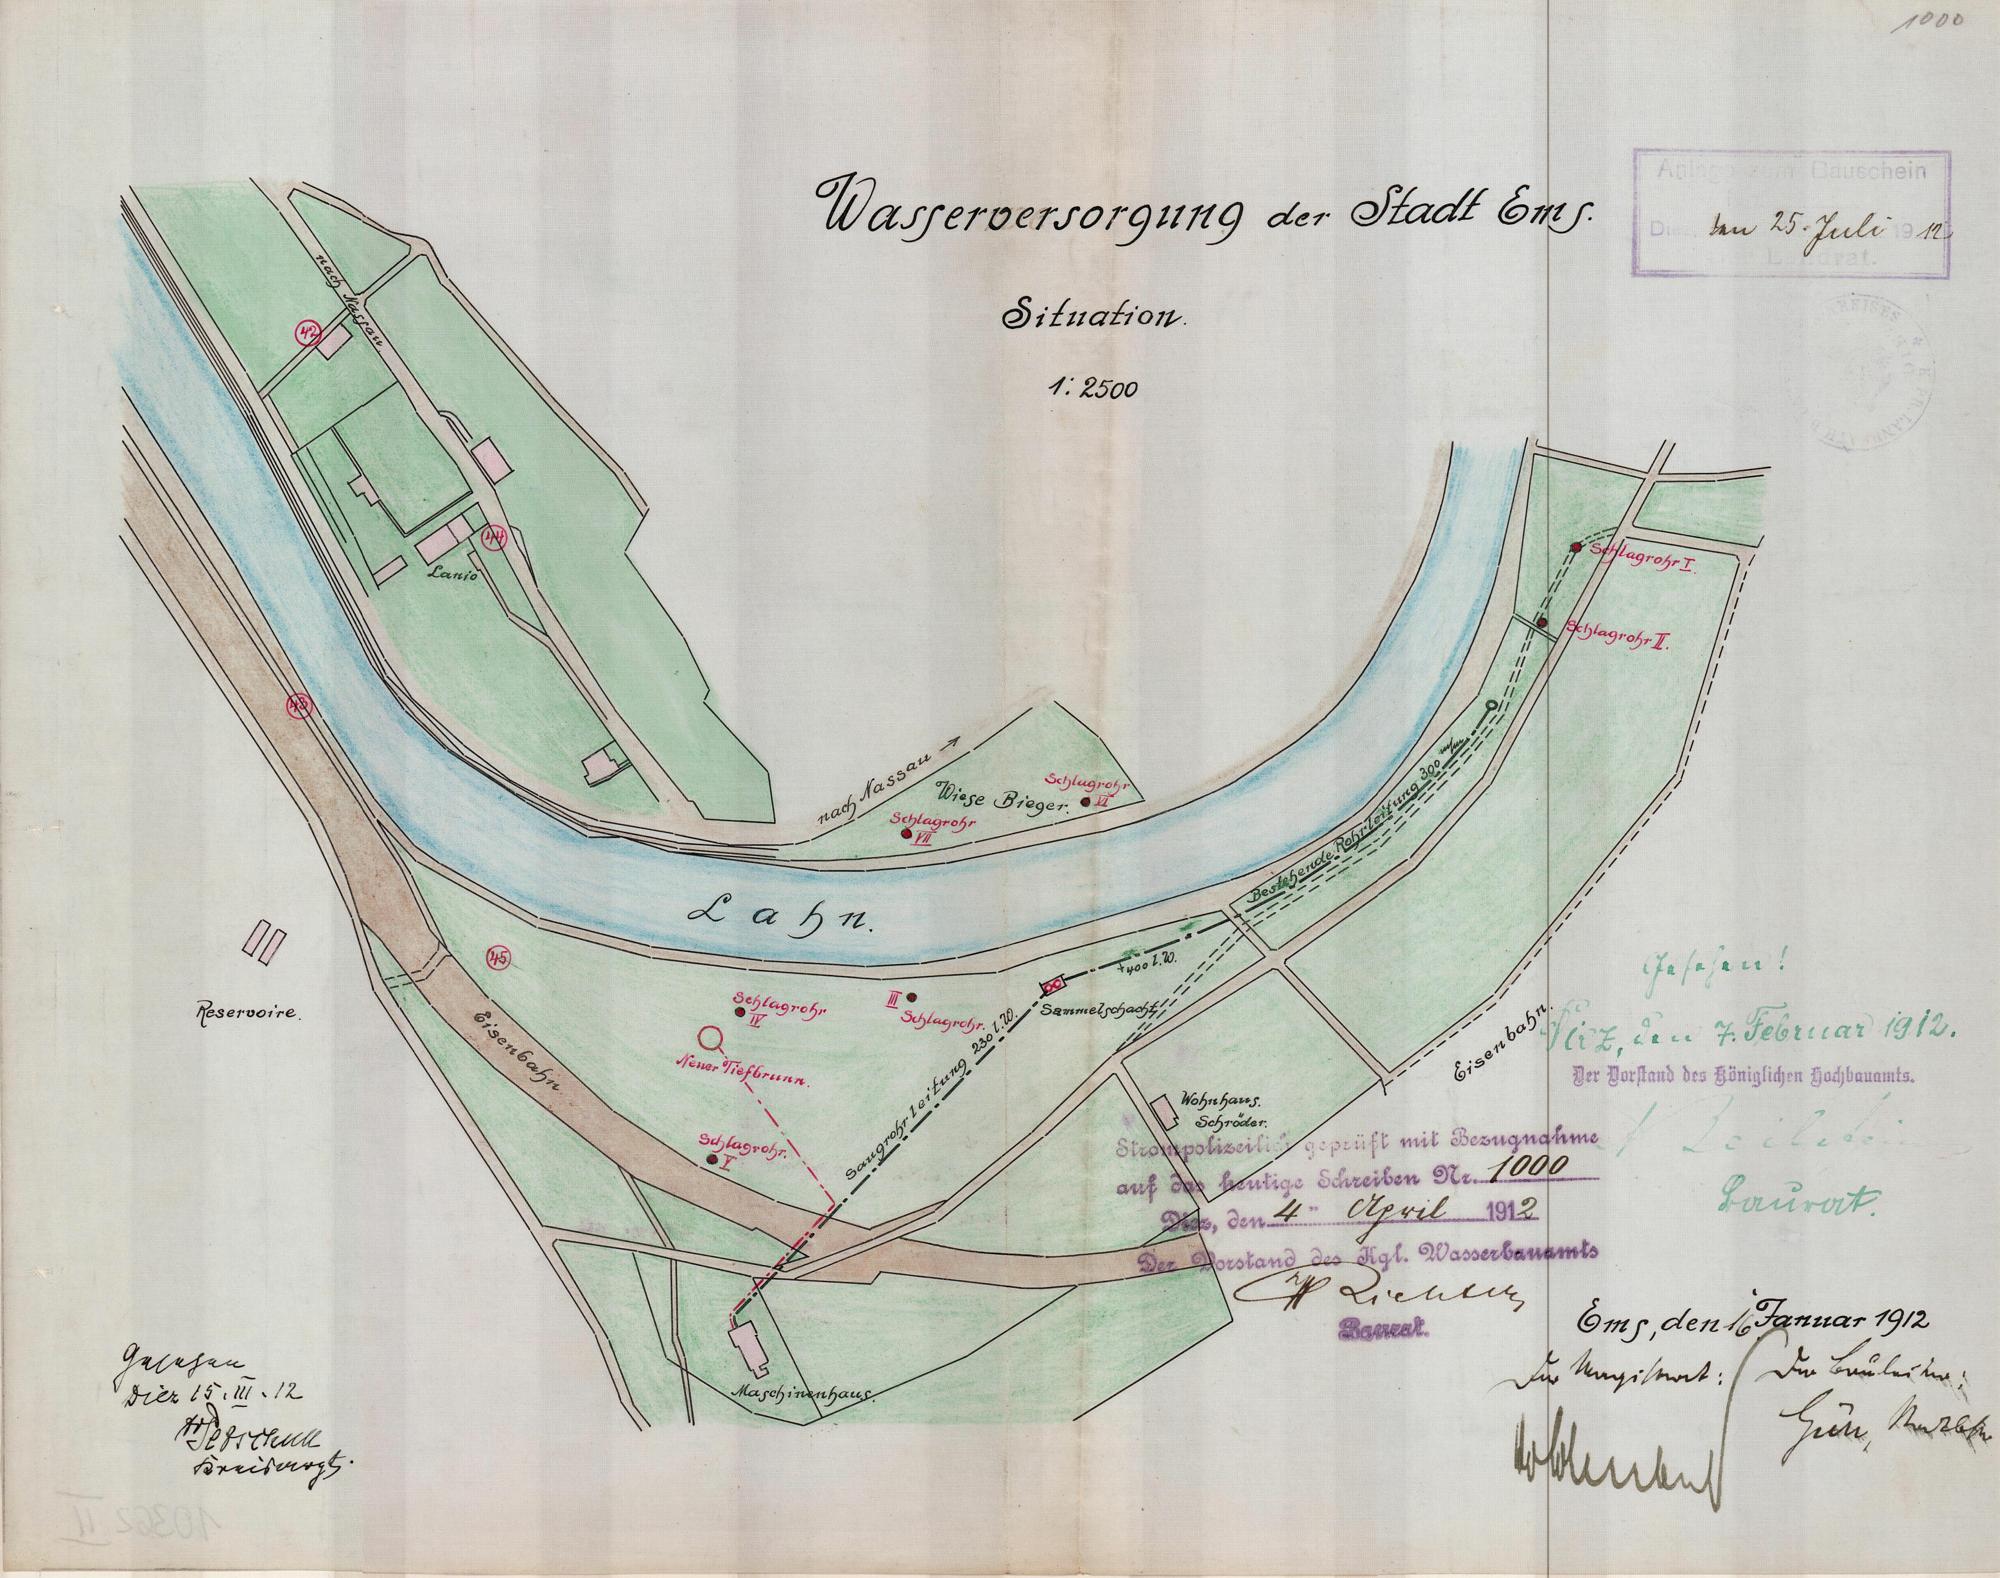 1000
Wasserversorgung der Stadt Ems.
Situation.
1:2500
Anlage zum Bauschein
Diez, den 25. Juli 1912
Landrat.
nach Nassau
42
44
Lanio
43
45
Schlagrohr I.
Schlagrohr II.
nach Nassau
Wiese Bieger.
Schlagrohr
VI
Schlagrohr
VII
Bestehende Rohrleitung 300 m/m
Lahn.
400 l.W.
Sammelschacht
Schlagrohr
IV
III
Schlagrohr.
Neuer Tiefbrunn.
Saugrohrleitung 230 l.W.
Schlagrohr.
V
Reservoire.
Eisenbahn
Eisenbahn.
Wohnhaus.
Schröder.
Maschinenhaus.
Gesehen!
Diez, den 7. Februar 1912.
Der Vorstand des Königlichen Hochbauamts.
Baurat.
Strompolizeilich geprüft mit Bezugnahme
auf das heutige Schreiben Nr. 1000
Diez, den 4" April 1912
Der Vorstand des Kgl. Wasserbauamts
Richter
Baurat.
Ems, den 16 Januar 1912
Der Magistrat:
Gesehen
Diez 15.III.12
Kreisarzt.
10362 II